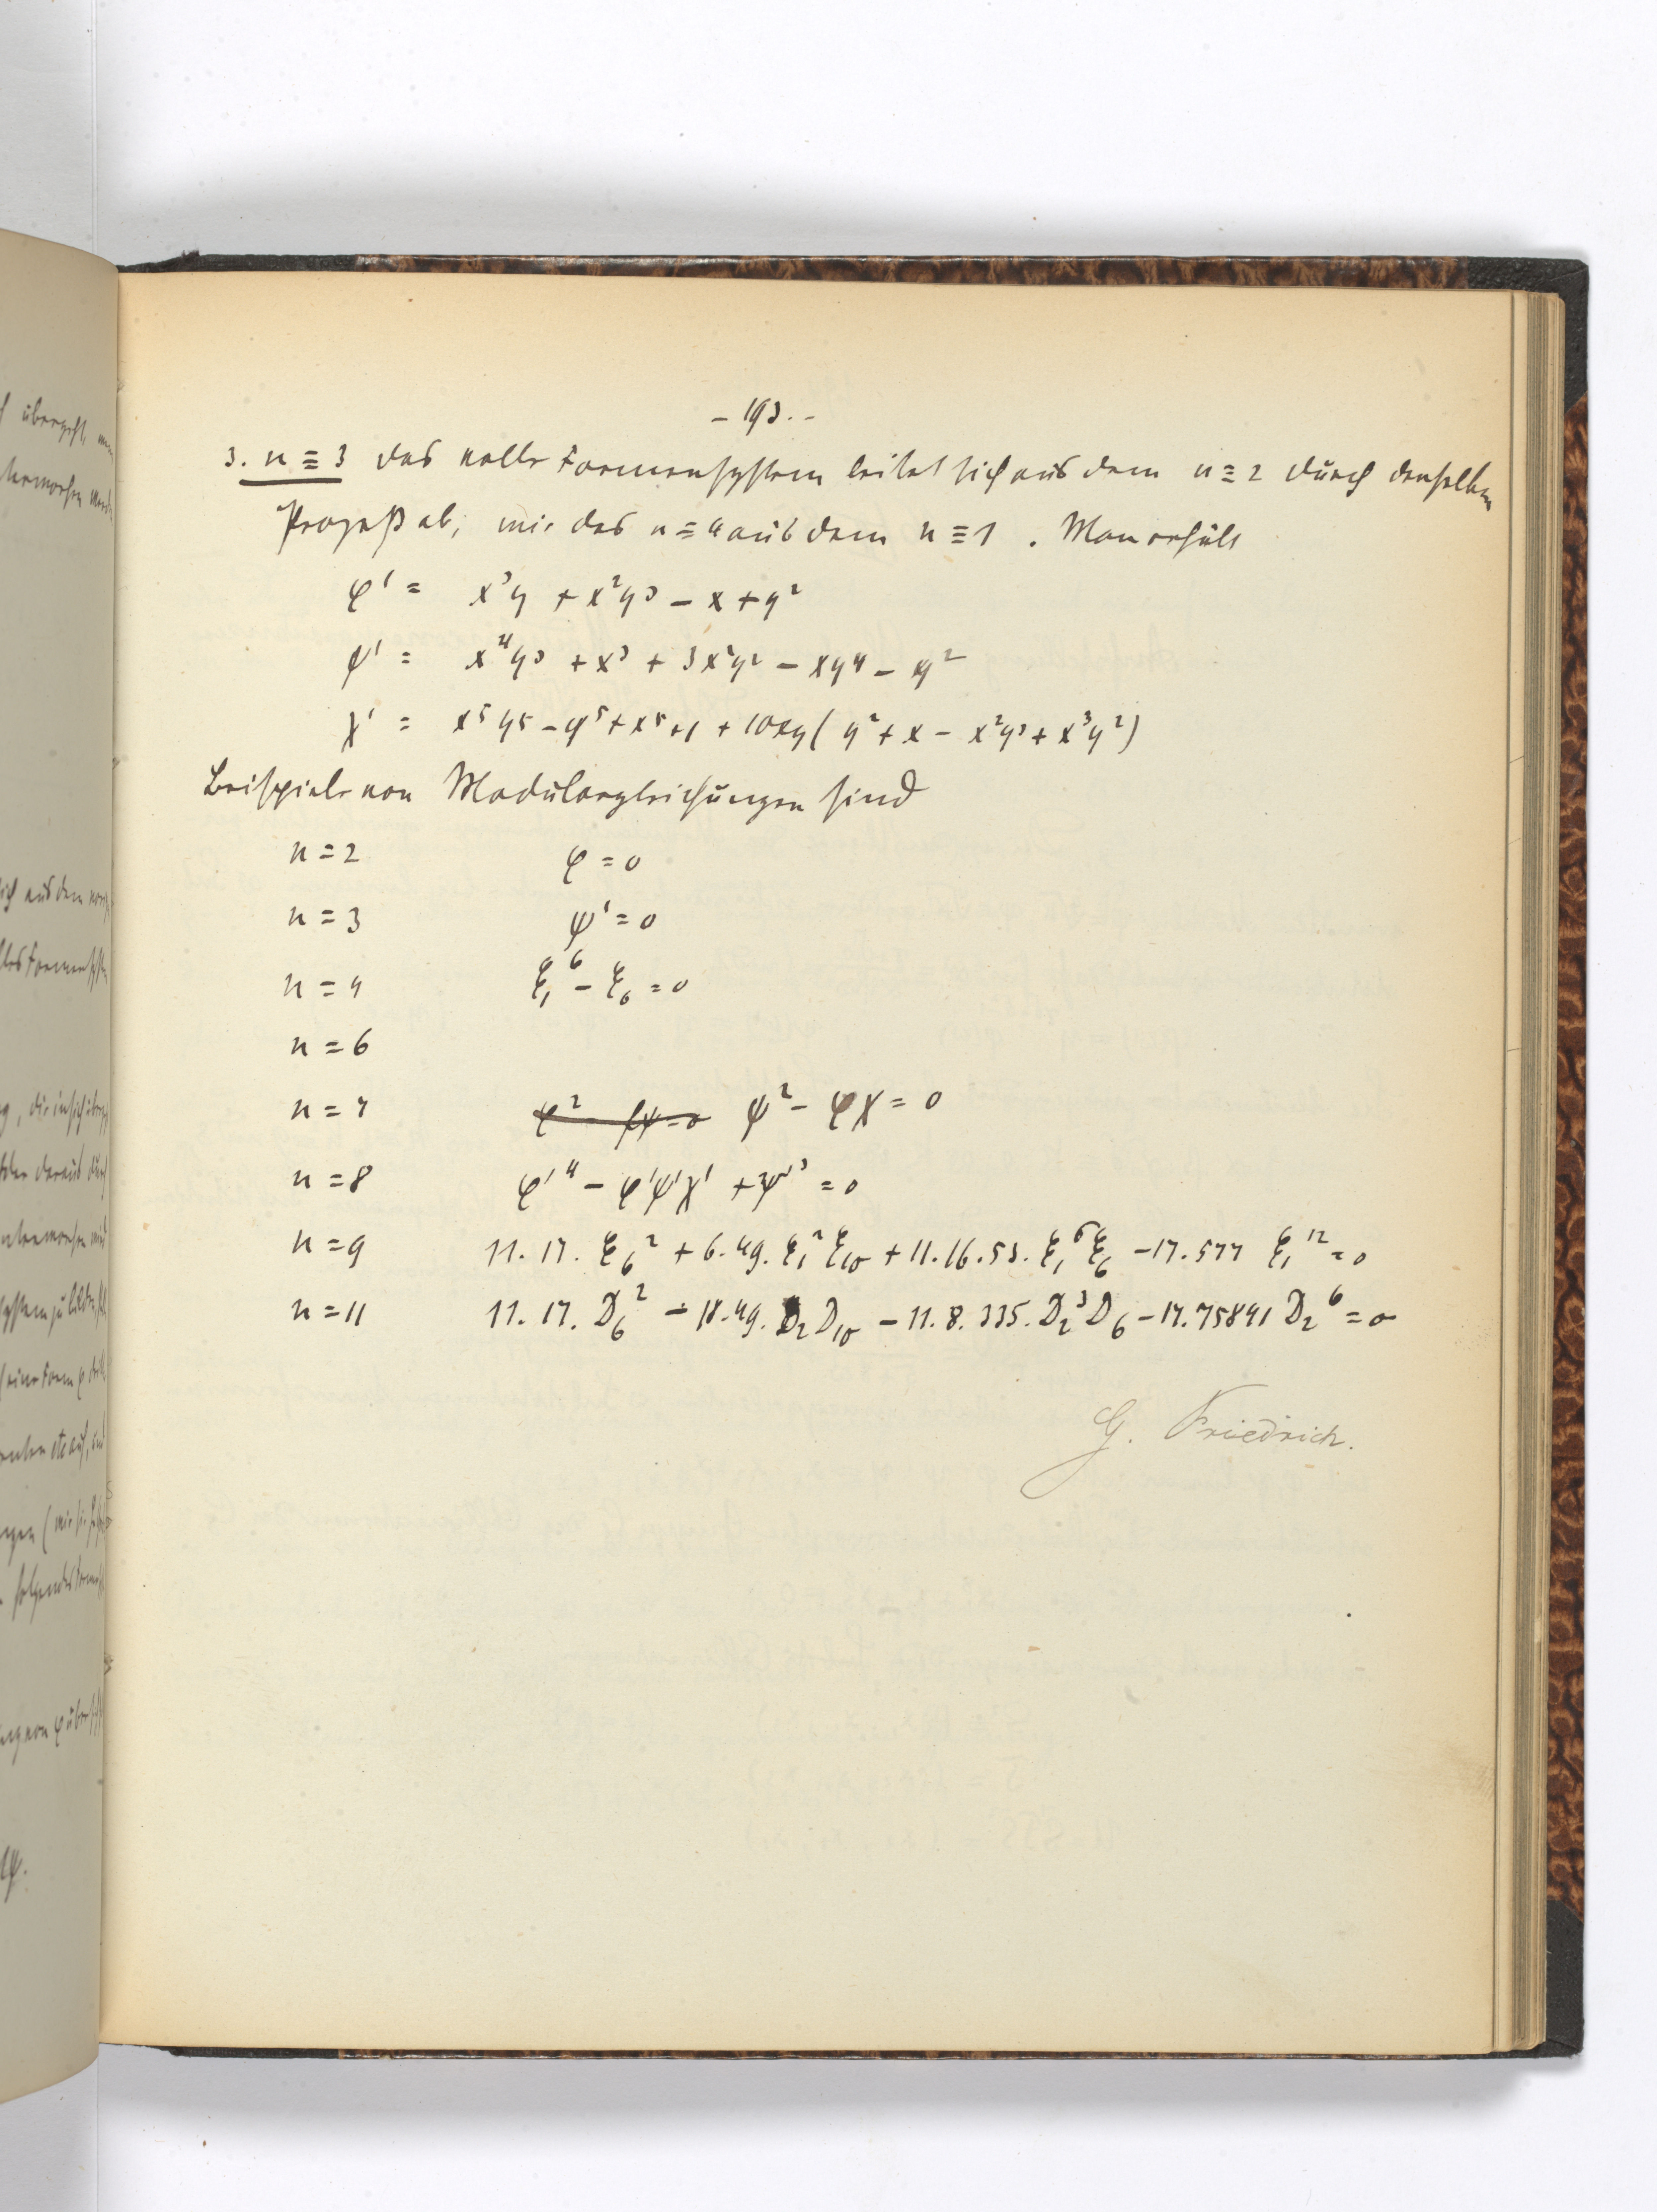 übergeht,
- 193. -
3. n ≡ 3 das volle Formensystem leitet sich aus dem n ≡ 2 durch denselben
Prozeß ab, wie das n ≡ 4 aus dem n ≡ 1. Man erhält
φ' = x³y + x²y³ - x + y²
ψ' = x⁴y³ + x³ + 3x²y² - xy⁴ - y²
χ' = x⁵y⁵ - y⁵ + x⁵ + 1 + 10xy( y² + x - x²y³ + x³y²)
Beispiele von Modulargleichungen sind
n = 2 φ = 0
n = 3 ψ' = 0
n = 4 ξ₁⁶ - ξ₆ = 0
n = 6
n = 7 ψ² - φχ = 0
n = 8 φ'⁴ - φ'ψ'χ' + ψ'³ = 0
n = 9 11. 17. ξ₆² + 6. 49. ξ₁² ξ₁₀ + 11. 16. 53. ξ₁⁶ ξ₆ - 17. 577 ξ₁¹² = 0
n = 11 11. 17. D₆² - 18. 49. D₂ D₁₀ - 11. 8. 335. D₂³ D₆ - 17. 75841 D₂⁶ = 0
G. Friedrich.